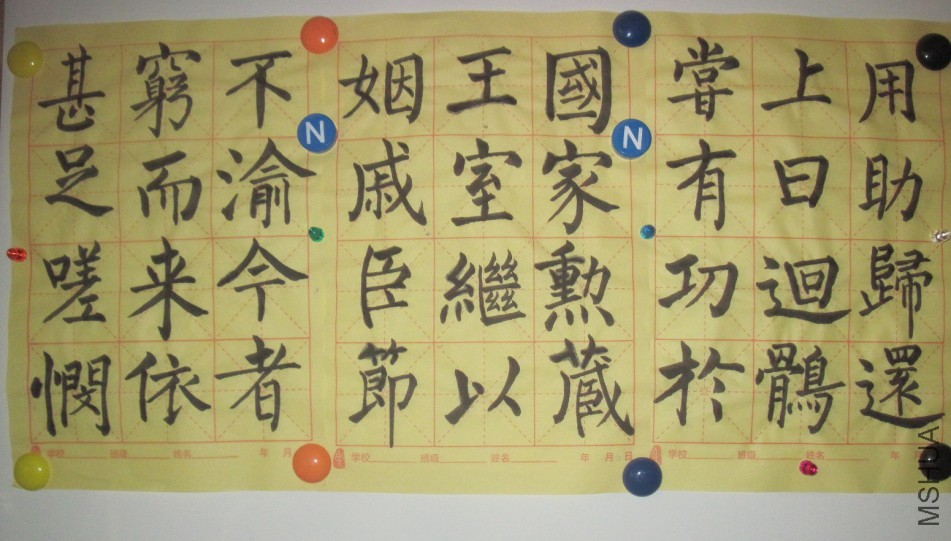 用助歸還
上曰迴鶻
甞有功於
國家勳蔵
王室繼以
姻戚臣節
不渝今者
窮而来依
甚足嗟憫
N
N
学校 班级 姓名 年 月
学校 班级 姓名 年 月 日
学校 班级 姓名 年 月
MSHUA